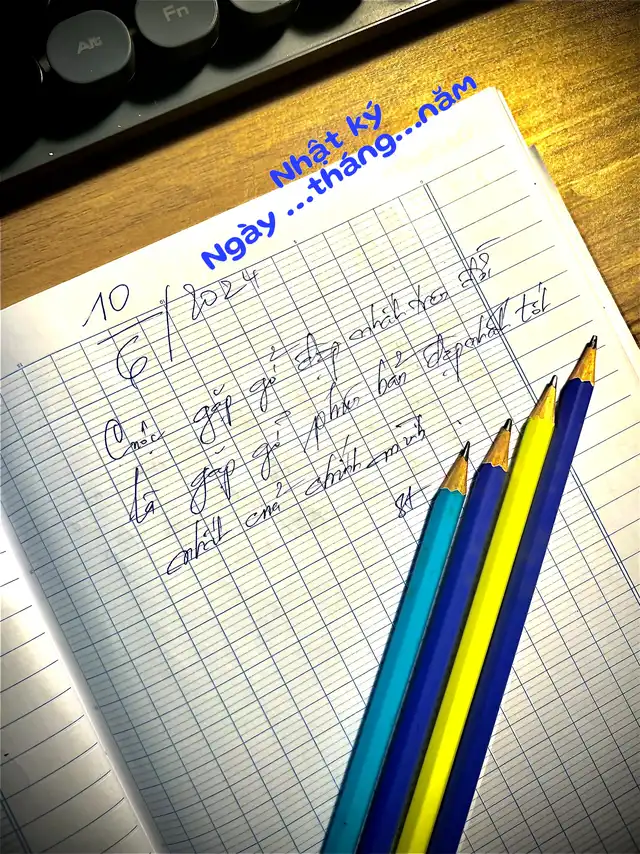 Alt
Fn
Nhật ký
Ngày ...tháng...năm
10
6/2024
Cuộc gặp gỡ đẹp nhất trên đời
Là gặp gỡ phiên bản đẹp nhất tốt
nhất của chính mình